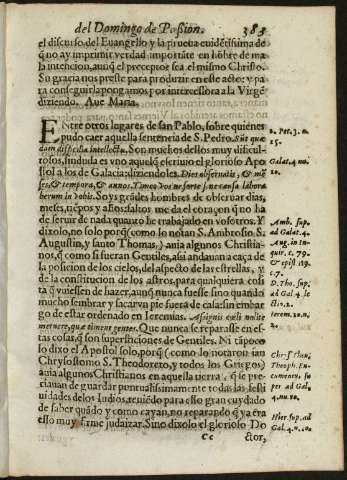 del Domingo de Passion. 383
el discurso del Euangelio y la prueua euidẽtissima de
q̃ no ay imprimir verdad importãte en hõbre de ma-
la intencion, aunq̃ el preceptor sea el mismo Christo.
Su gracia nos preste para produzir en este acto: y pa-
ra conseguirla pongamos por intercessora a la Virgẽ
diziendo. Aue Maria.
ENtre otros lugares de san Pablo, sobre quiẽnes
pudo caer aquella sentencia de S. Pedro. Sũt quæ
dam difficilia intellectu. Son muchos dellos muy dificul-
tosos, sinduda es vno aquel q̃ escriuio el glorioso Apo
stol a los de Galacia: diziendoles. Dies obseruatis, & mẽ
ses, & tempora, & annos. Timeo vos ne forte sine causa labora
uerim in vobis. Soys grãdes hombres de obseruar dias,
meses, tiẽpos y años: saltos me da el coraçon que no ha
de seruir de nada quanto he trabajado en vosotros. Y
dixolo, no solo porq̃ (como lo notan S. Ambrosio S.
Augustin, y santo Thomas,) auia algunos Christia-
nos, q̃ como si fueran Gentiles, assi andauan a caça de
la posicion de los cielos, del aspecto de las estrellas, y
de la constitucion de los astros, para qualquiera cosa
q̃ vuiessen de hazer, aunq̃ nunca fuesse sino quando
mucho sembrar y sacar vn pie fuera de casa: sin embar
go de estar ordenado en Ieremias. A signis cæli nolite
metuere, quæ timent gentes. Que nunca se reparasse en es-
tas cosas, q̃ son supersticiones de Gentiles. Ni tãpoco
lo dixo el Apostol solo, porq̃ (como lo notaron san
Chrysostomo S. Theodoreto, y todos los Griegos)
auia algunos Christianos en aquella tierra, q̃ se pre-
ciauan de guardar puntualissimamente todas las festi
uidades de los Iudios, teniẽdo para esso gran cuydado
de saber quãdo y como cayan, no reparando q̃ ya era
esso muy firme judaizar. Sino dixolo el glorioso Do
Cc ctor,
2. Pet. 3. n.
15.
Galat. 4. nu.
10.
Amb. sup.
ad Galat. 4.
Aug. in
& epist. 119.
c. 7.
D. Tho. sup.
ad Gal. 4. le
ct. 2.
Ierem. 10. n.
2.
Theoph.
per ad Gal.
4. nu. 10.
Hier. sup. ad
Gal. 4. n. 10.